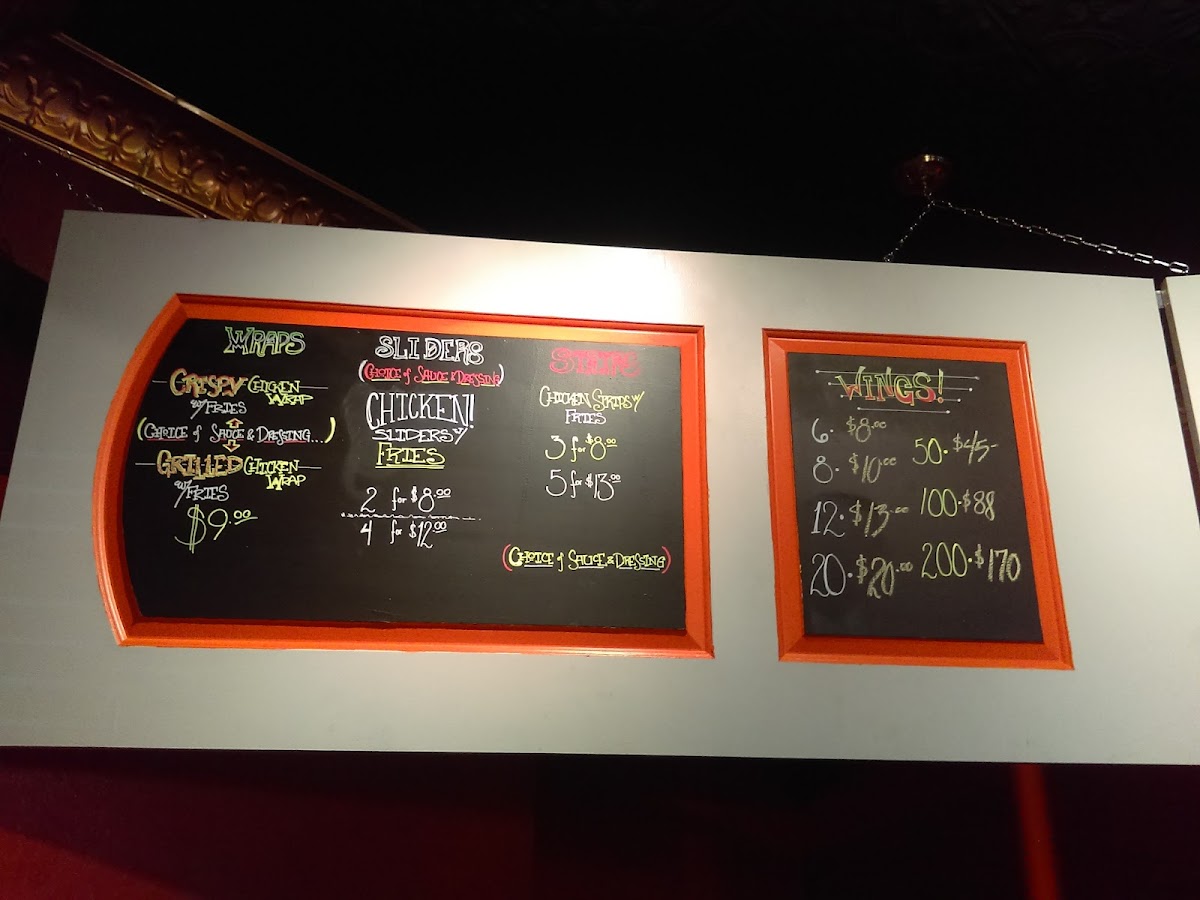 WRAPS
CRISPY CHICKEN WRAP
W/ FRIES
(CHOICE of SAUCE & DRESSING...)
GRILLED CHICKEN WRAP
W/ FRIES
$9.00
SLIDERS
(CHOICE of SAUCE & DRESSING)
CHICKEN!
SLIDERS W/
FRIES
2 for $8.00
4 for $12.00
STRIPS
CHICKEN STRIPS W/
FRIES
3 for $8.00
5 for $13.00
(CHOICE of SAUCE & DRESSING)
WINGS!
6. $8.00
8. $10.00
12. $13.00
20. $20.00
50. $45-
100. $88
200. $170